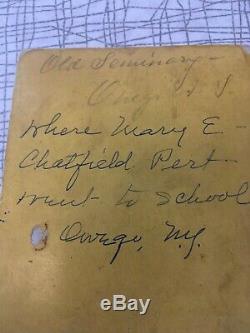 Old Seminary -
Owego N.Y.
Where Mary E -
Chatfield Pert -
went to School
Owego, N.Y.